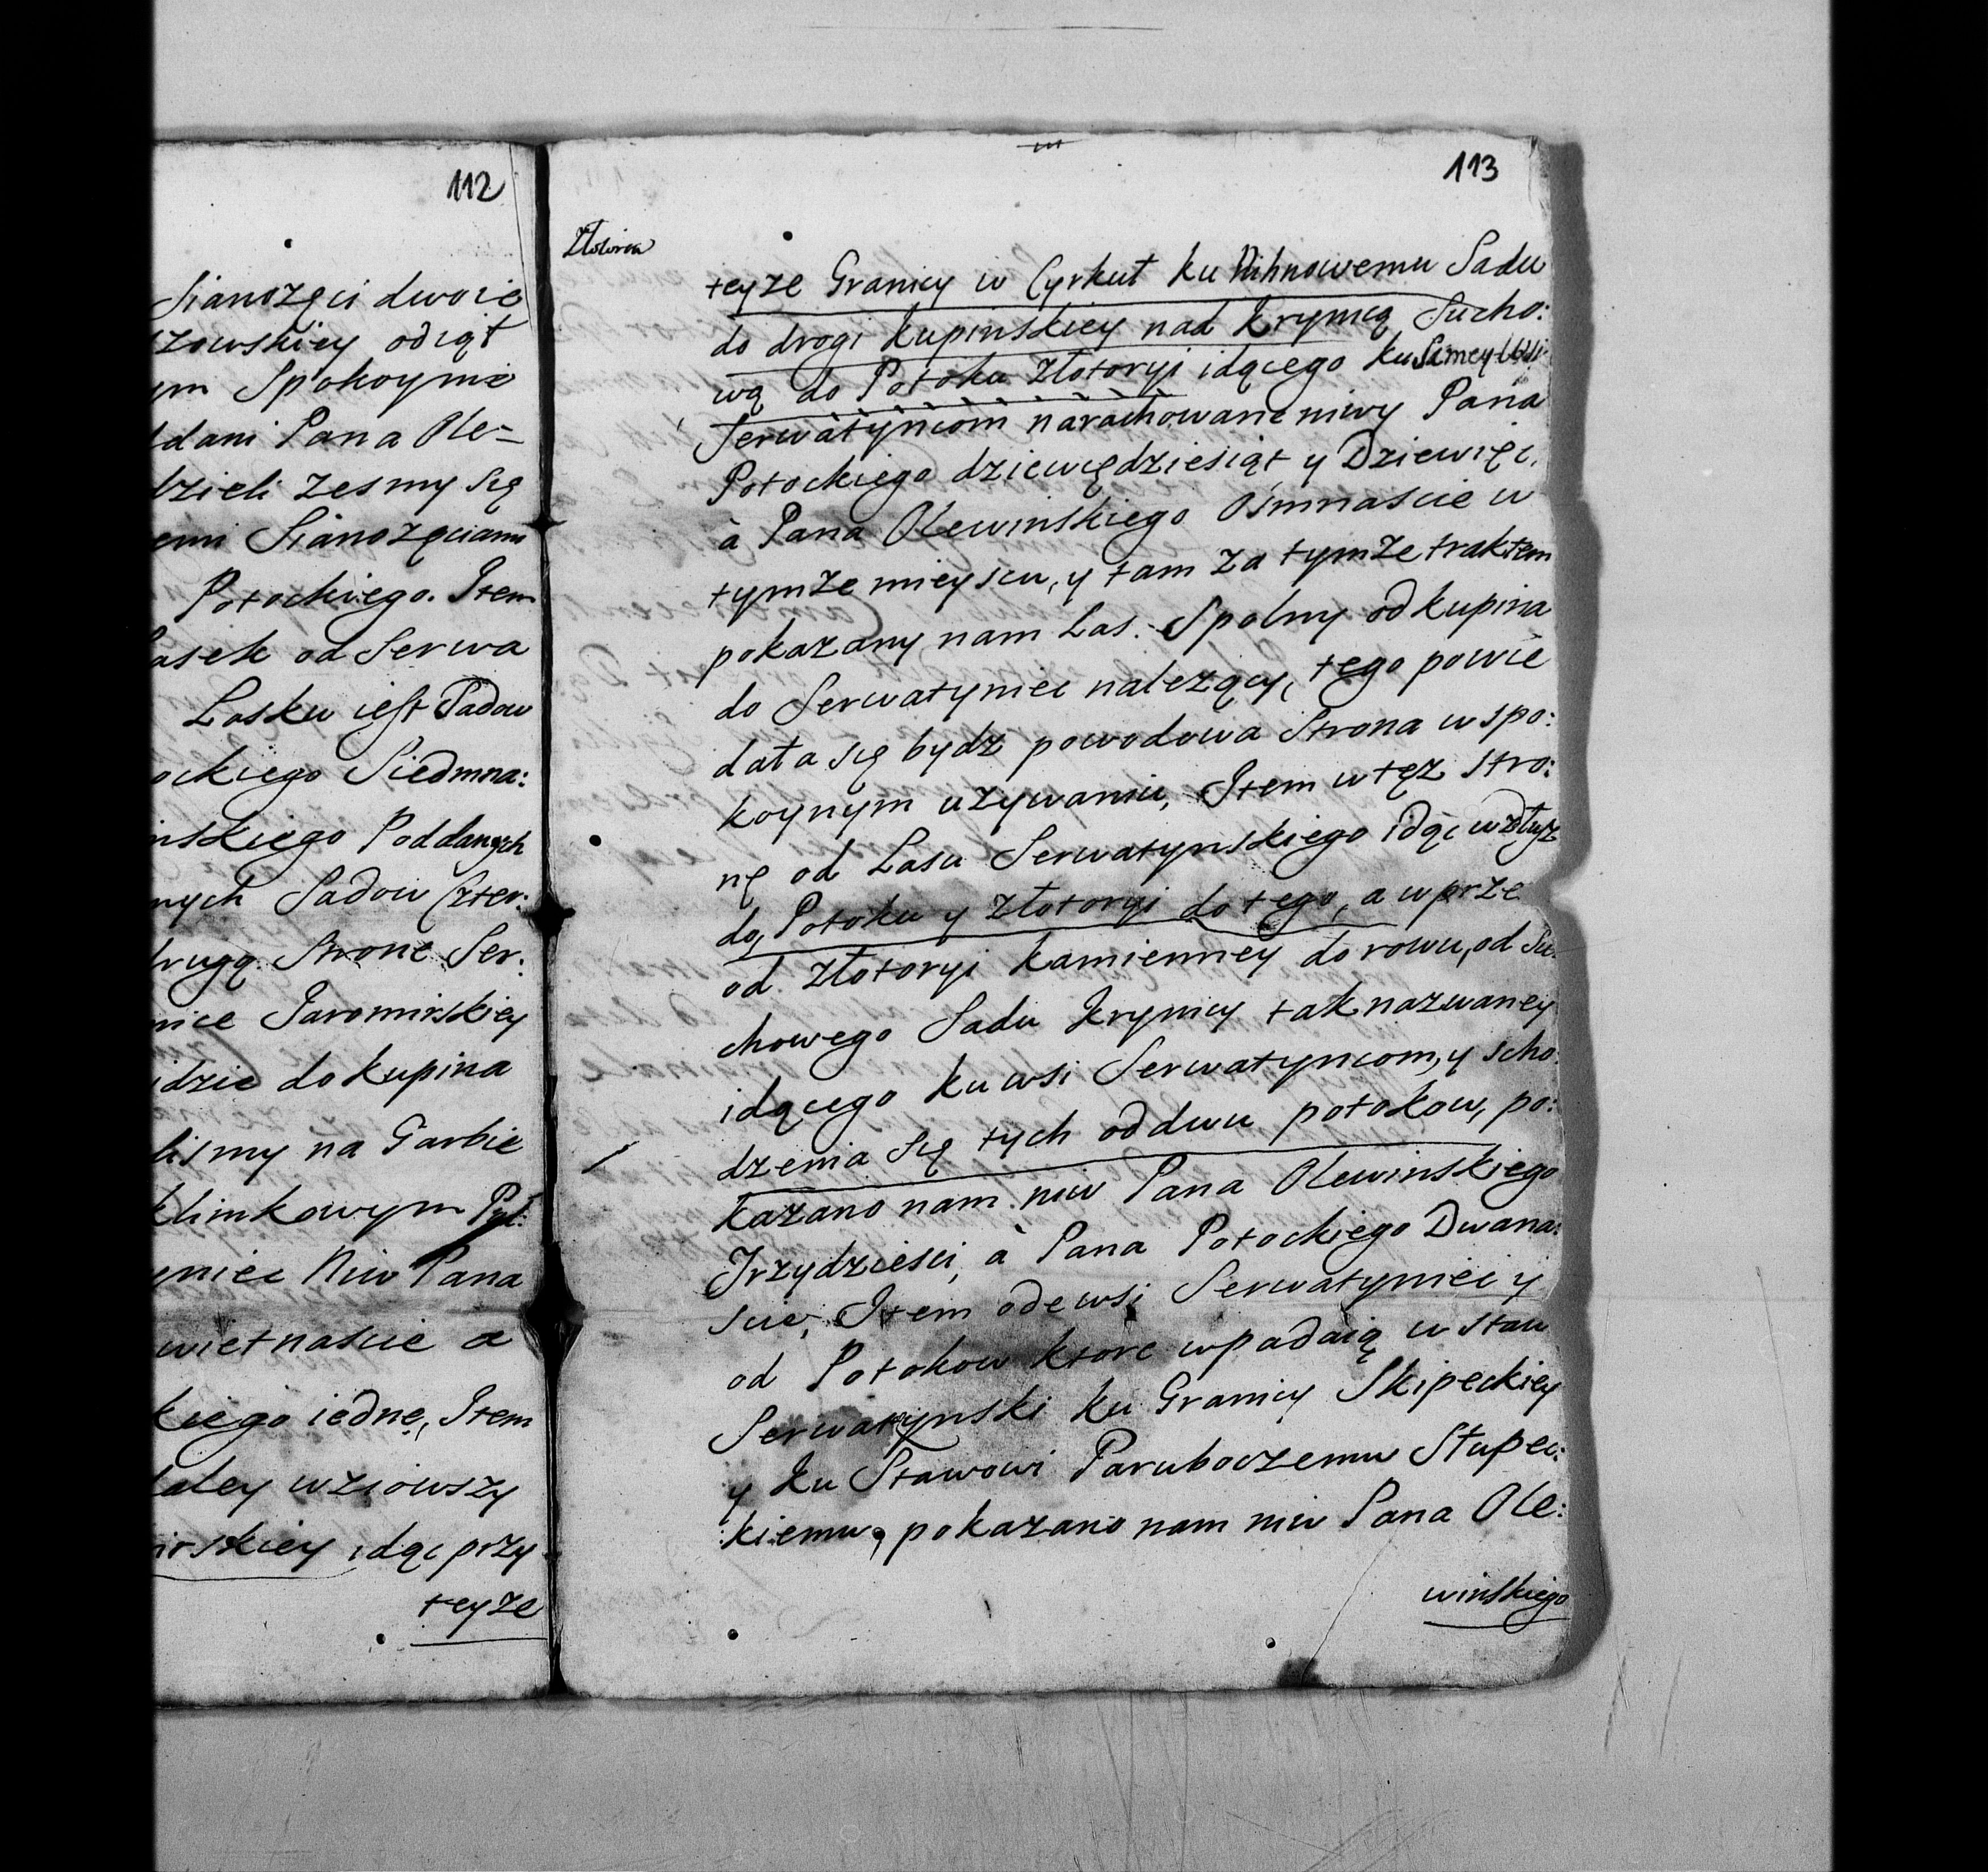 112
Sianozęci dwoie
zowskiey odiąt
ym Spokoynie
ddani Pana Ole=
dzieli zesmy się
emi Sianozęciami
Potockiego. Item
asek od Serwa
Lasku iest Sadow
ockiego Siedmna:
inskiego Poddanych
nych Sadow Czter:
drugą Strone Ser:
nice Jaromirskiey
idzie do Kupina
lismy na Garbie
klimkowym
yniec Niw Pana
wietnascie a
kiego iedne, Item
daley wziowszy
irskiey idąc przy
teyze
113
Złotoria
teyze Granicy w Cyrkuł ku Sadu
do drogi Kupinskiey nad Krynicą Sucho:
wą do Potoku Złotoryi idącego ku
Serwatyncom narachowane niwy Pana
Potockiego dziewiędziesiąt y Dziewięć,
à Pana Olewinskiego Osmnascie w
tymze mieyscu, y tam za tymze traktem
pokazany nam Las. Spolny od kupina
do Serwatyniec nalezący, tego powie
dała się bydz powodowa Strona w spo:
koynym uzywaniu, Item w tęz stro:
nę od Lasu Serwatynskiego idąc wzdłuz
do, Potoku y Złotoryi do tego, a wprze
od Złotoryi Kamienney do rowu, od Su:
chowego Sadu Krynicy tak nazwaney
idącego ku wsi Serwatyncom, y scho:
dzenia się tych oddwu potokow, po:
kazano nam niw Pana Olewinskiego
Trzydziesci, à Pana Potockiego Dwana:
scie, Item odewsi Serwatyniec y
od Potokow ktore wpadaią w staw
Serwatynski ku Granicy Skipeckiey
y ku Stawowi Paruboczemu Słupec:
:kiemu, pokazano nam niw Pana Ole:
winskiego